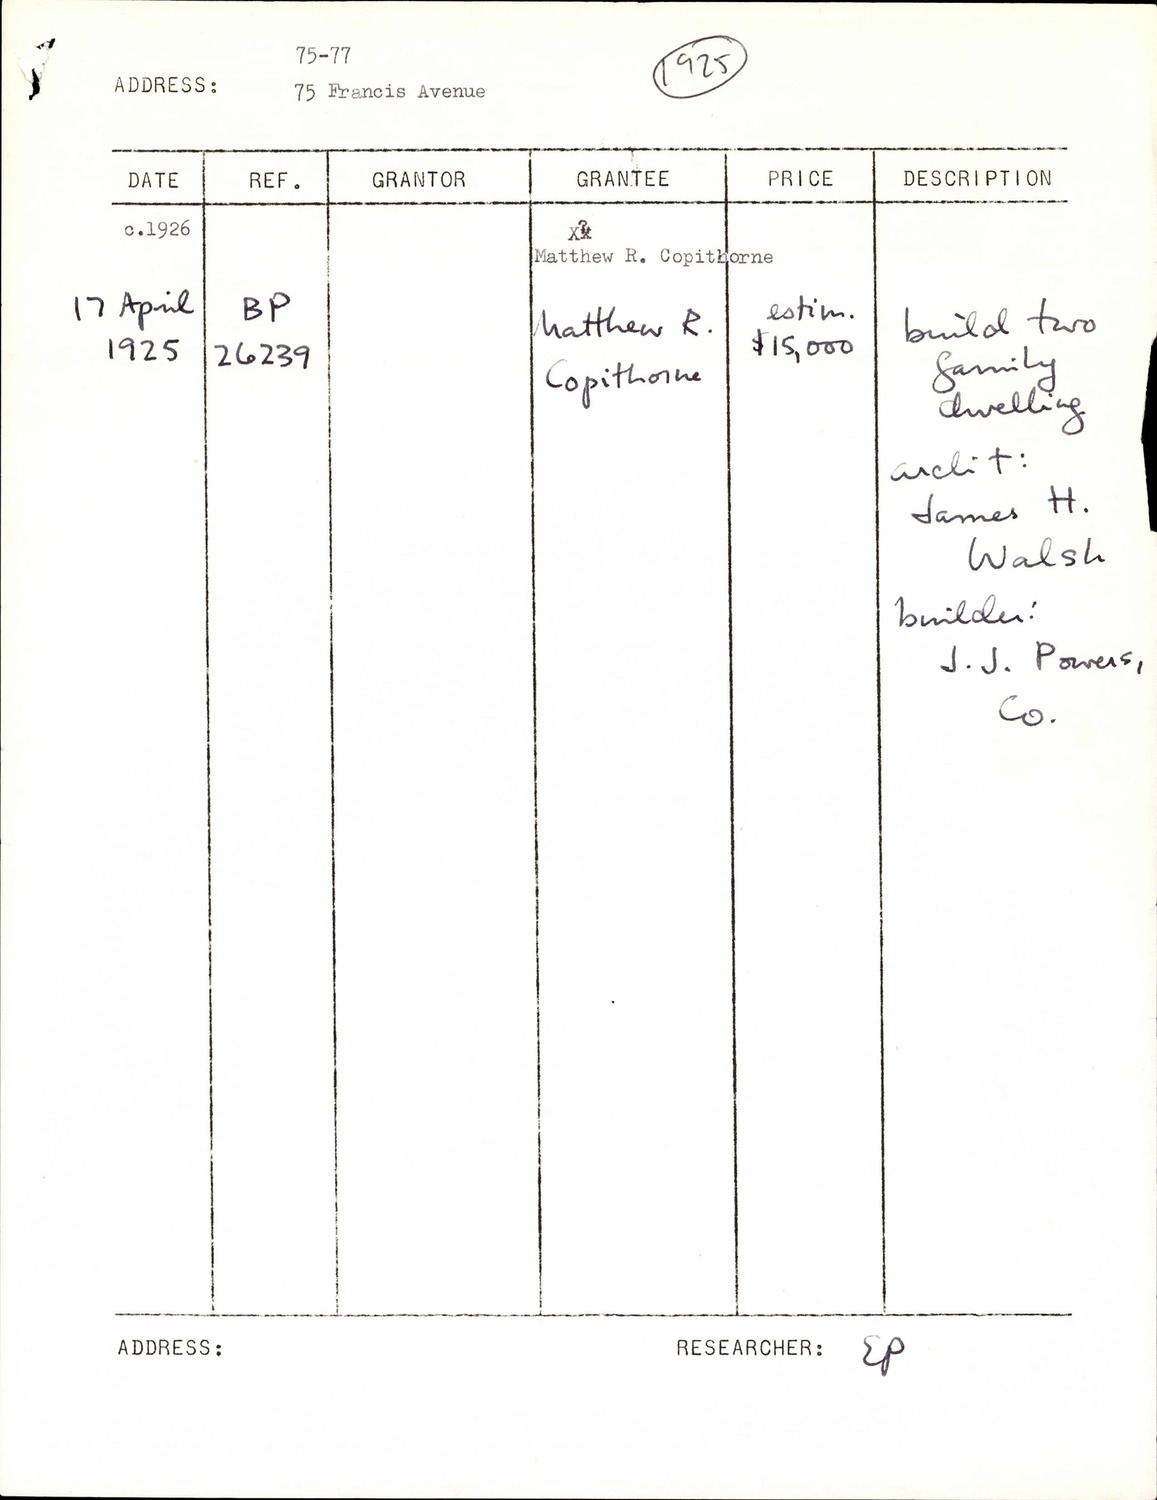 75-77
ADDRESS: 75 Francis Avenue
1925
DATE REF. GRANTOR GRANTEE PRICE DESCRIPTION
c.1926
Matthew R. Copithorne
17 April
1925
BP
26239
Matthew R.
Copithorne
estim.
$15,000
build two
family
dwelling
archit:
James H.
Walsh
builder:
J.J. Powers,
Co.
ADDRESS:
RESEARCHER: EP